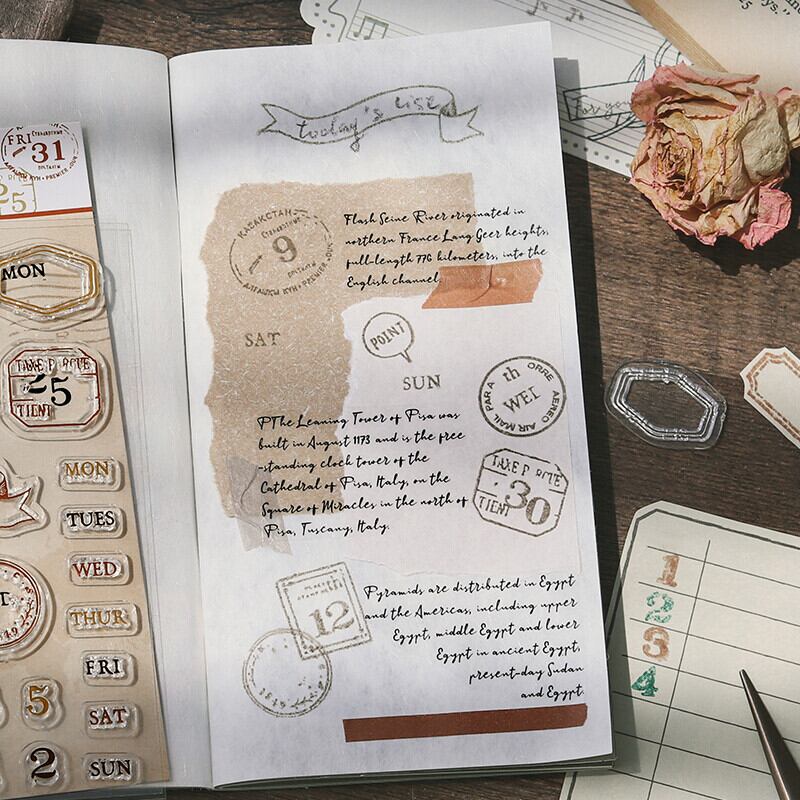 today's list
ҚАЗАҚСТАН
9
АЛҒАШҚЫ КҮН • PREMIER JOUR
Flash Seine River originated in
northern France Lang Geer heights,
full-length 776 kilometers, into the
English channel.
SAT
POINT
SUN
th
WEI
PAR A ORRE AEREO AIR MAIL
PThe Leaning Tower of Pisa was
built in August 1173 and is the free
-standing clock tower of the
Cathedral of Pisa, Italy, on the
Square of Miracles in the north of
Pisa, Tuscany, Italy.
30
TIENT
th
12
Pyramids are distributed in Egypt
and the Americas, including upper
Egypt, middle Egypt and lower
Egypt in ancient Egypt,
present-day Sudan
and Egypt.
FRI
31
АЛҒАШҚЫ КҮН • PREMIER JOUR
25
MON
25
TIENT
MON
TUES
WED
THUR
FRI
5
SAT
2
SUN
For you
1
2
3
4